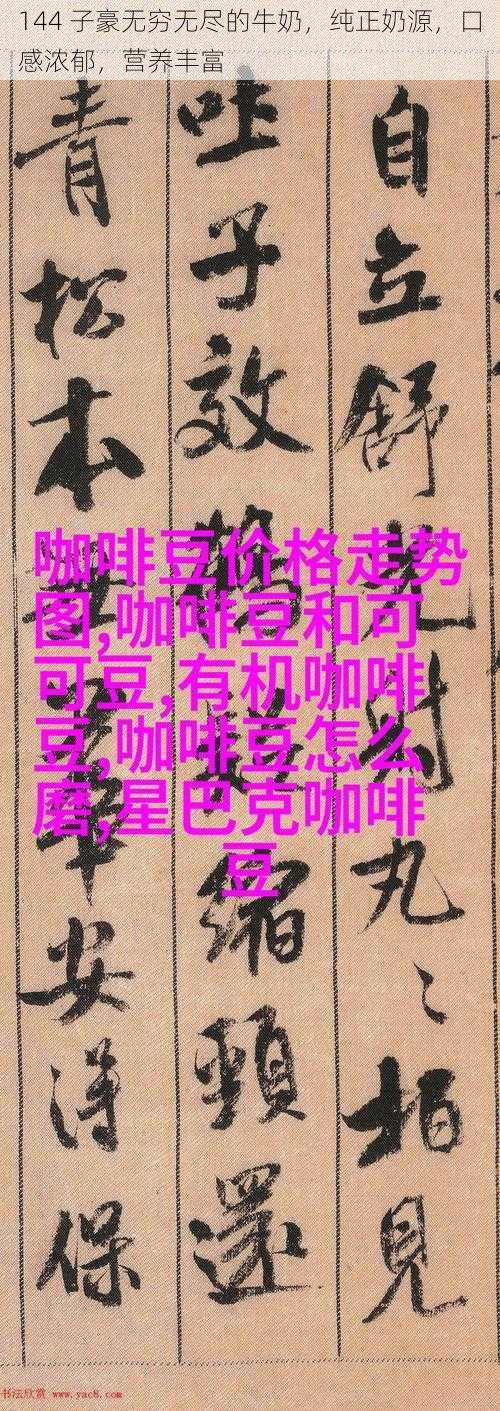 144 子豪无穷无尽的牛奶，纯正奶源，口
感浓郁，营养丰富
自立舒光射丸〻柏見
吐子效鶴縮頸還
青松本無華安得保
咖啡豆价格走势
图,咖啡豆和可
可豆,有机咖啡
豆,咖啡豆怎么
磨,星巴克咖啡
豆
书法欣赏 www.yac8.com